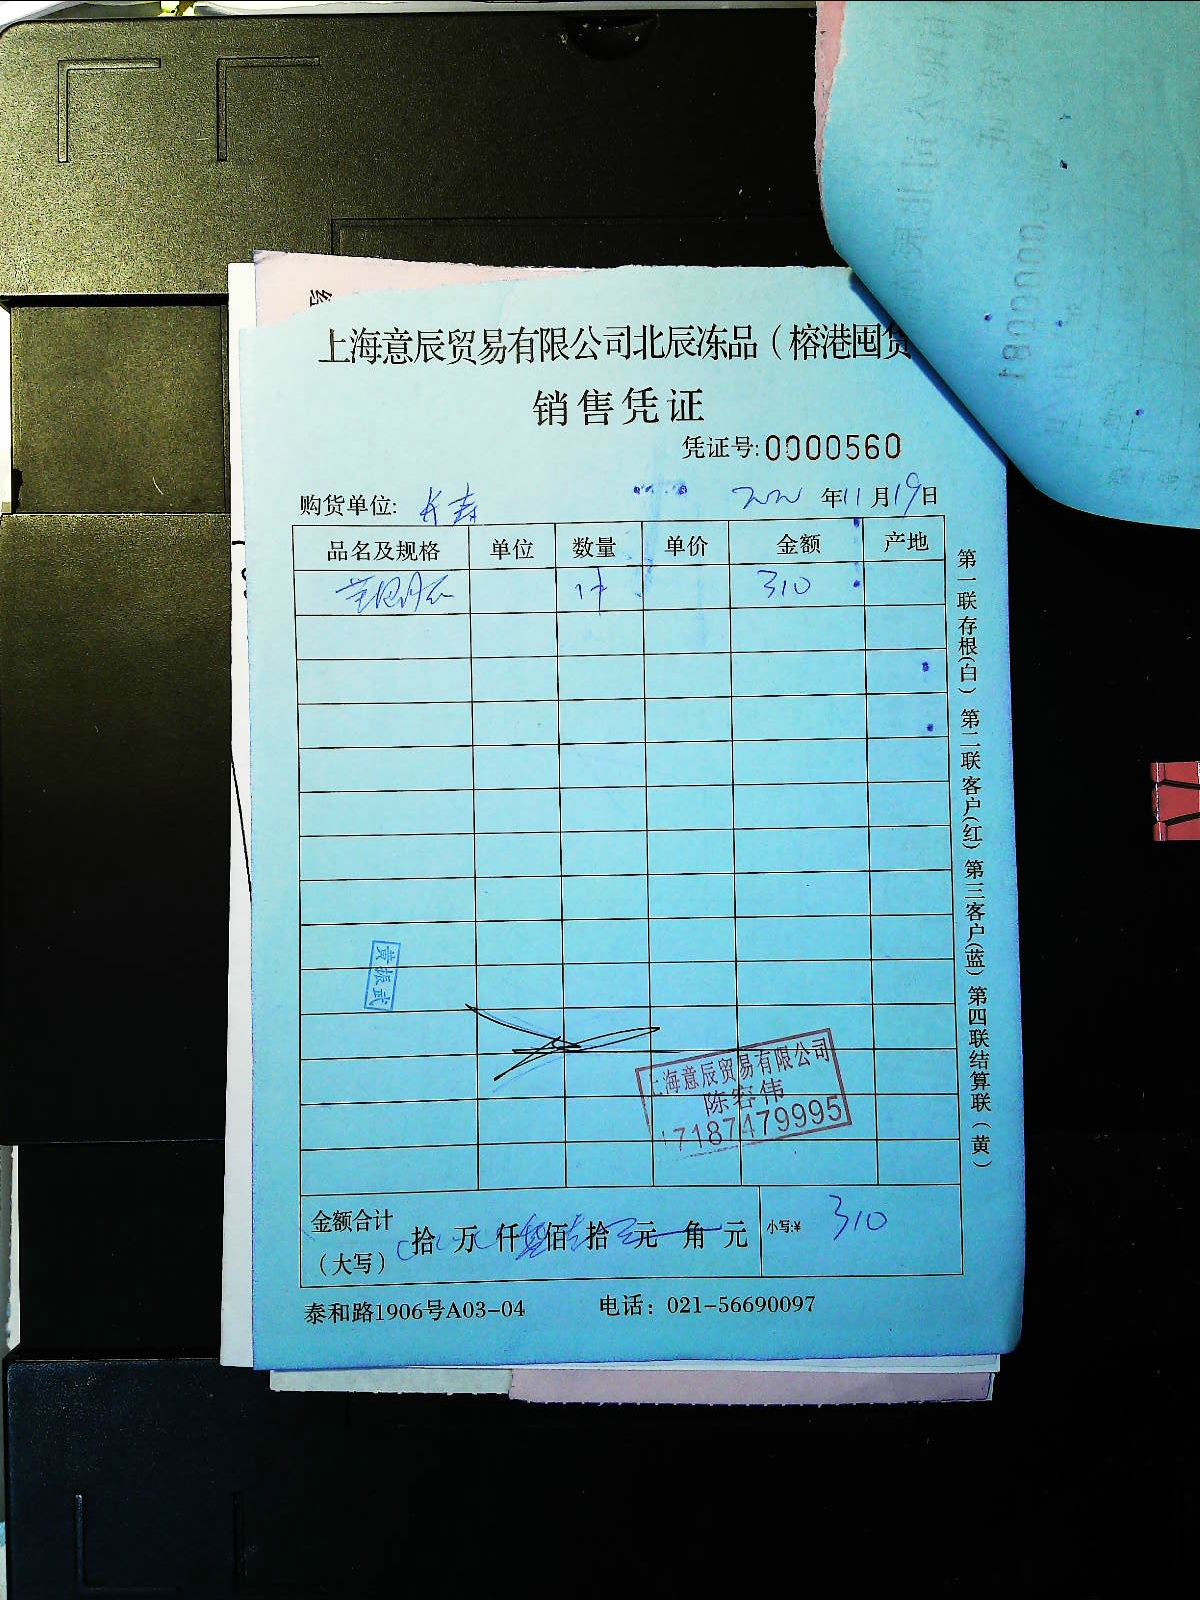 上海意辰贸易有限公司北辰冻品（榕港囤货
销售凭证
凭证号:0000560
购货单位: 长寿 2022 年 11 月 19 日
品名及规格 单位 数量 单价 金额 产地
1件 310
黄振武
上海意辰贸易有限公司
陈容伟
17187479995
金额合计
（大写） 拾 万 仟 叁 佰 壹 拾 元 角 元 小写:¥ 310
泰和路1906号A03-04 电话：021-56690097
第一联存根(白) 第二联客户(红) 第三客户(蓝) 第四联结算联（黄）
0000081